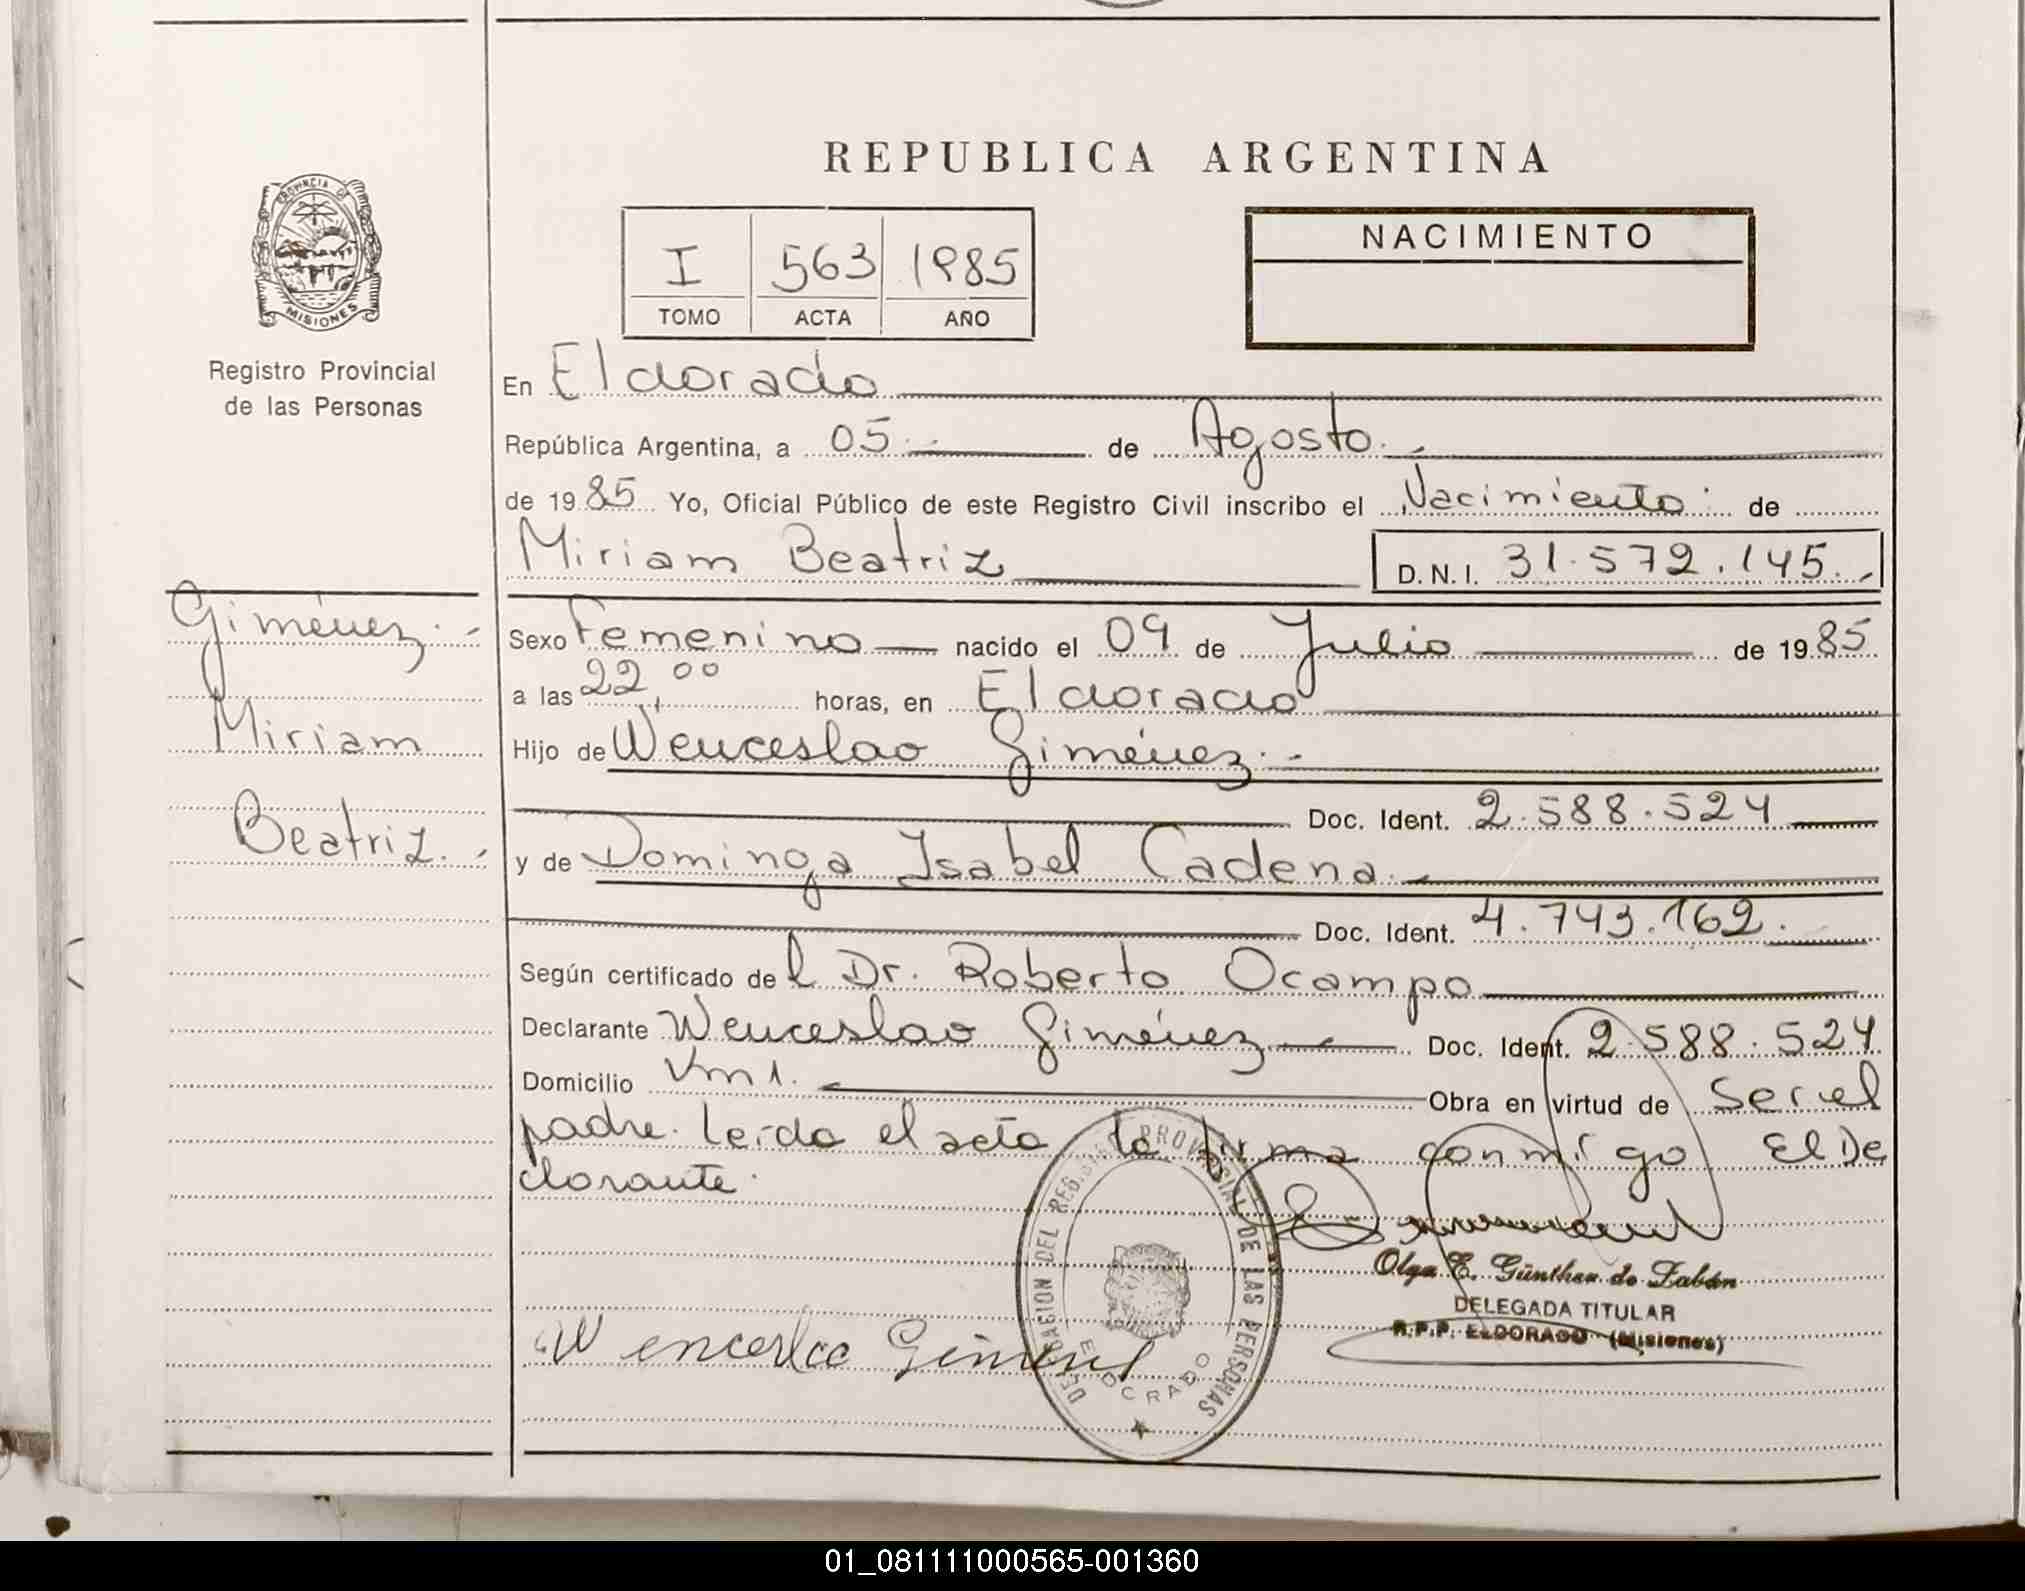 REPUBLICA ARGENTINA
PROVINCIA DE
MISIONES
Registro Provincial
de las Personas
I 563 1985
TOMO ACTA AÑO
NACIMIENTO
En Eldorado
República Argentina, a 05 de Agosto
de 1985 Yo, Oficial Público de este Registro Civil inscribo el Nacimiento de
Miriam Beatriz D.N.I. 31.572.145
Giménez
Miriam
Beatriz
Sexo Femenino nacido el 09 de Julio de 1985
a las 22,00 horas, en Eldorado
Hijo de Wenceslao Giménez
Doc. Ident. 2.588.524
y de Dominga Isabel Cadena
Doc. Ident. 4.743.162
Según certificado del Dr. Roberto Ocampo
Declarante Wenceslao Giménez Doc. Ident. 2.588.524
Domicilio Km 1. Obra en virtud de ser el
padre. Leída el acta la firma conmigo El De
clarante.
DELEGACION DEL REGISTRO PROVINCIAL DE LAS PERSONAS
ELDORADO
Olga E. Günther de Zabán
DELEGADA TITULAR
R.P.P. ELDORADO (Misiones)
Wencerlao Gimenez
01_081111000565-001360